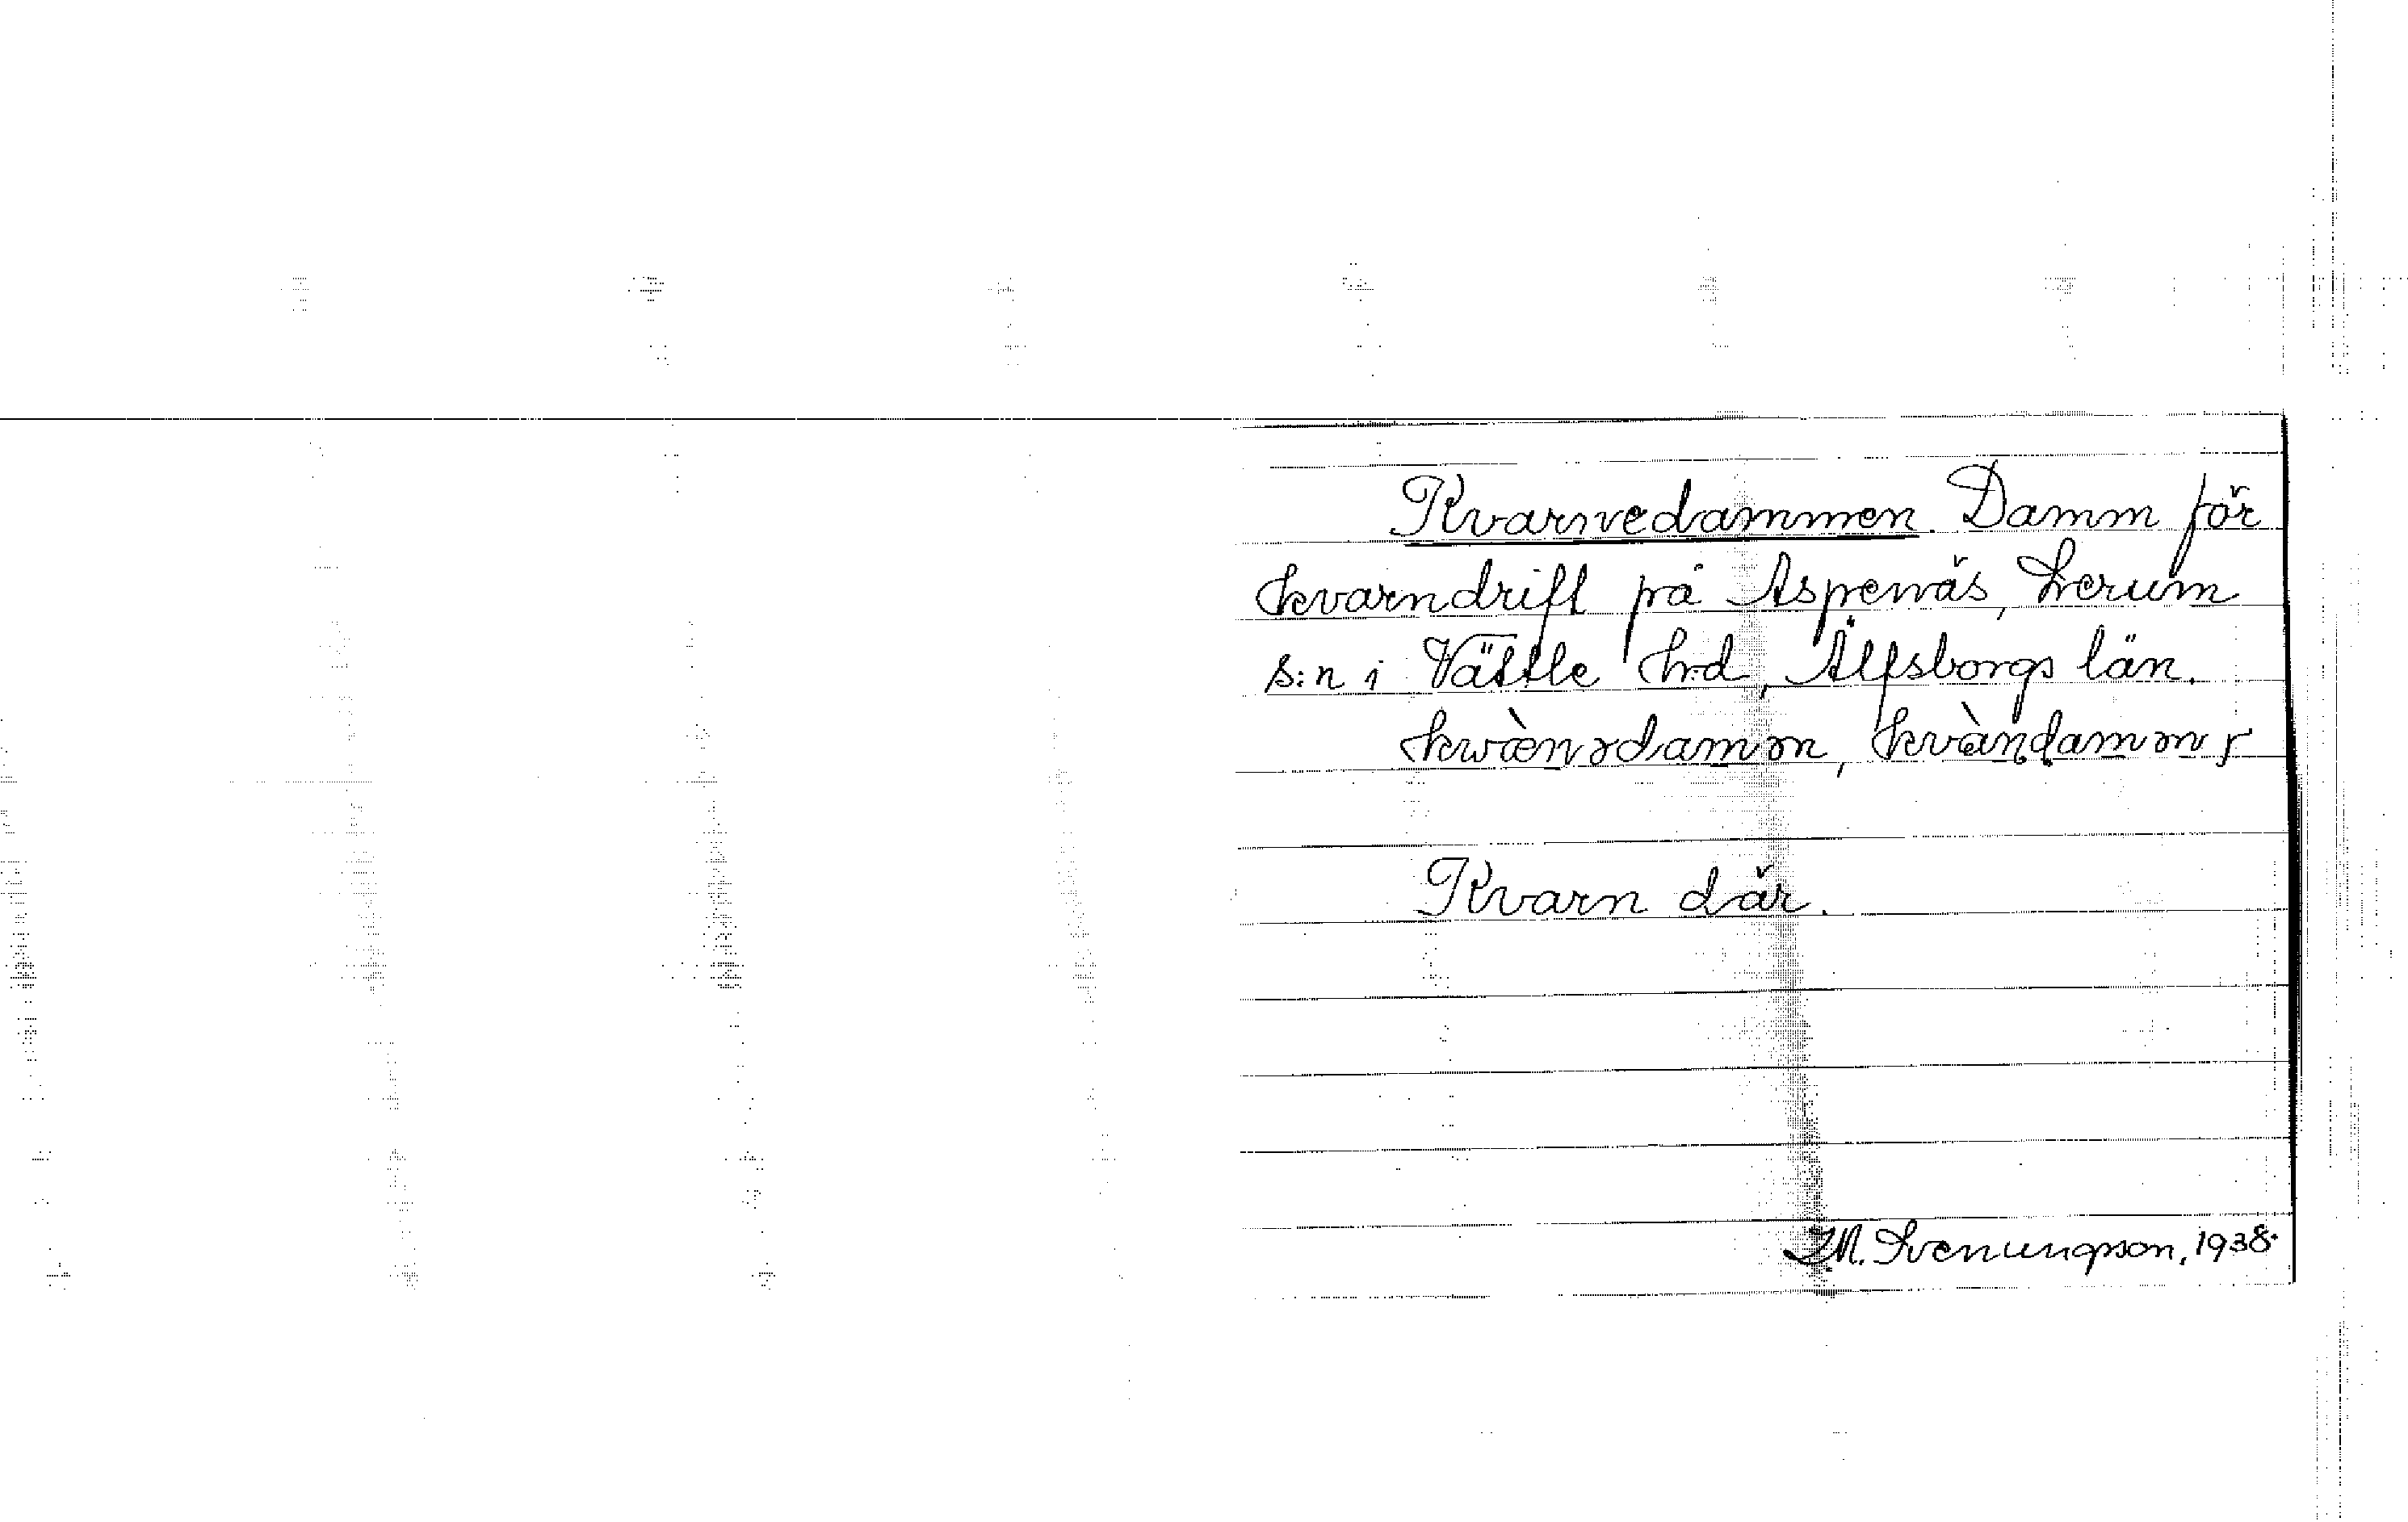 Kvarnedammen. Damm för
kvarndrift på Aspenäs, Lerum
s:n i Vättle hd, Älfsborgs län.
kwæ̀nədamən, kvàn̨damən ɼ
Kvarn där.
I M. Svenungson, 1938.